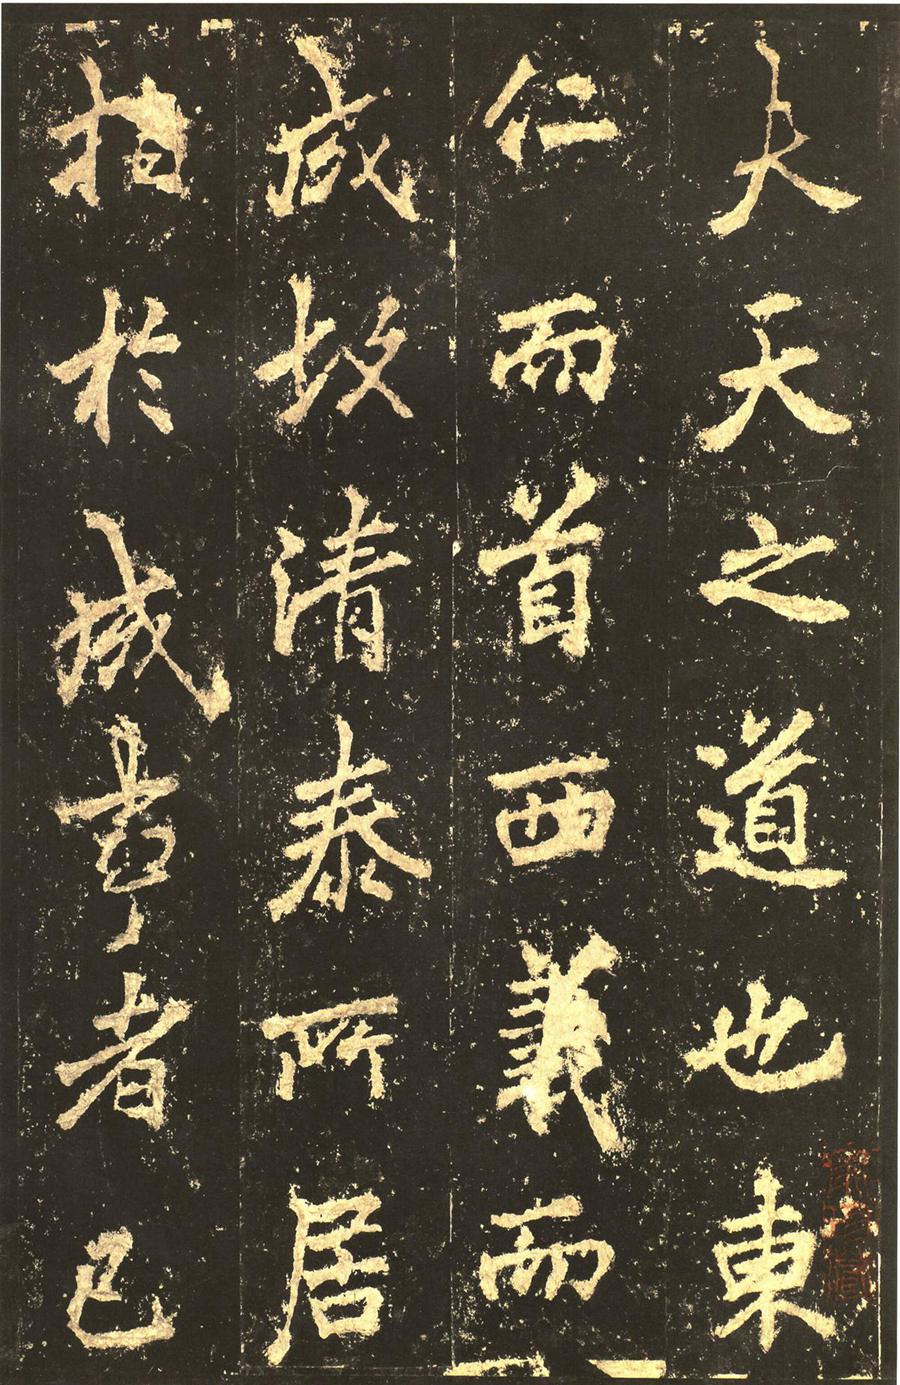 夫天之道也東
仁而首西義而
成故清泰所居
指於成事者已